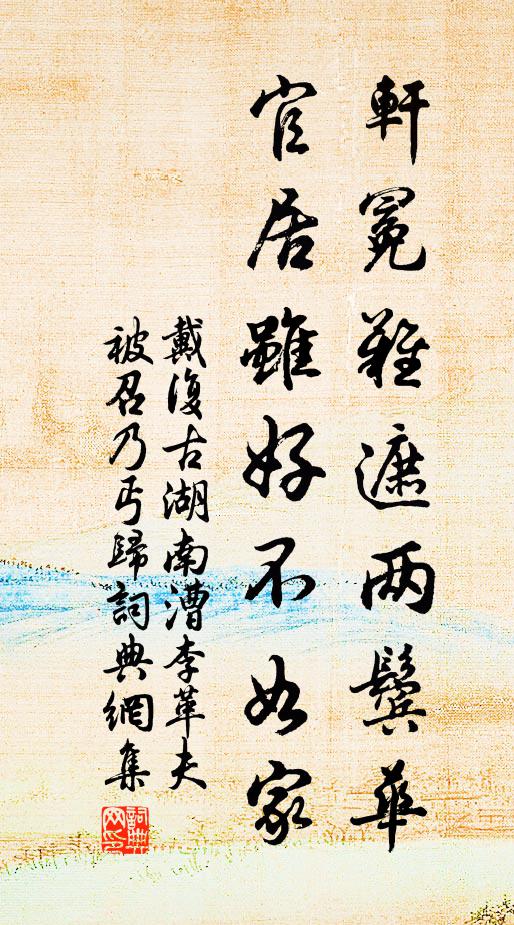 軒冕難遮兩鬢華
官居雖好不如家
戴復古湖南漕李革夫
被召乃丐歸詞典網集
詞典
网印